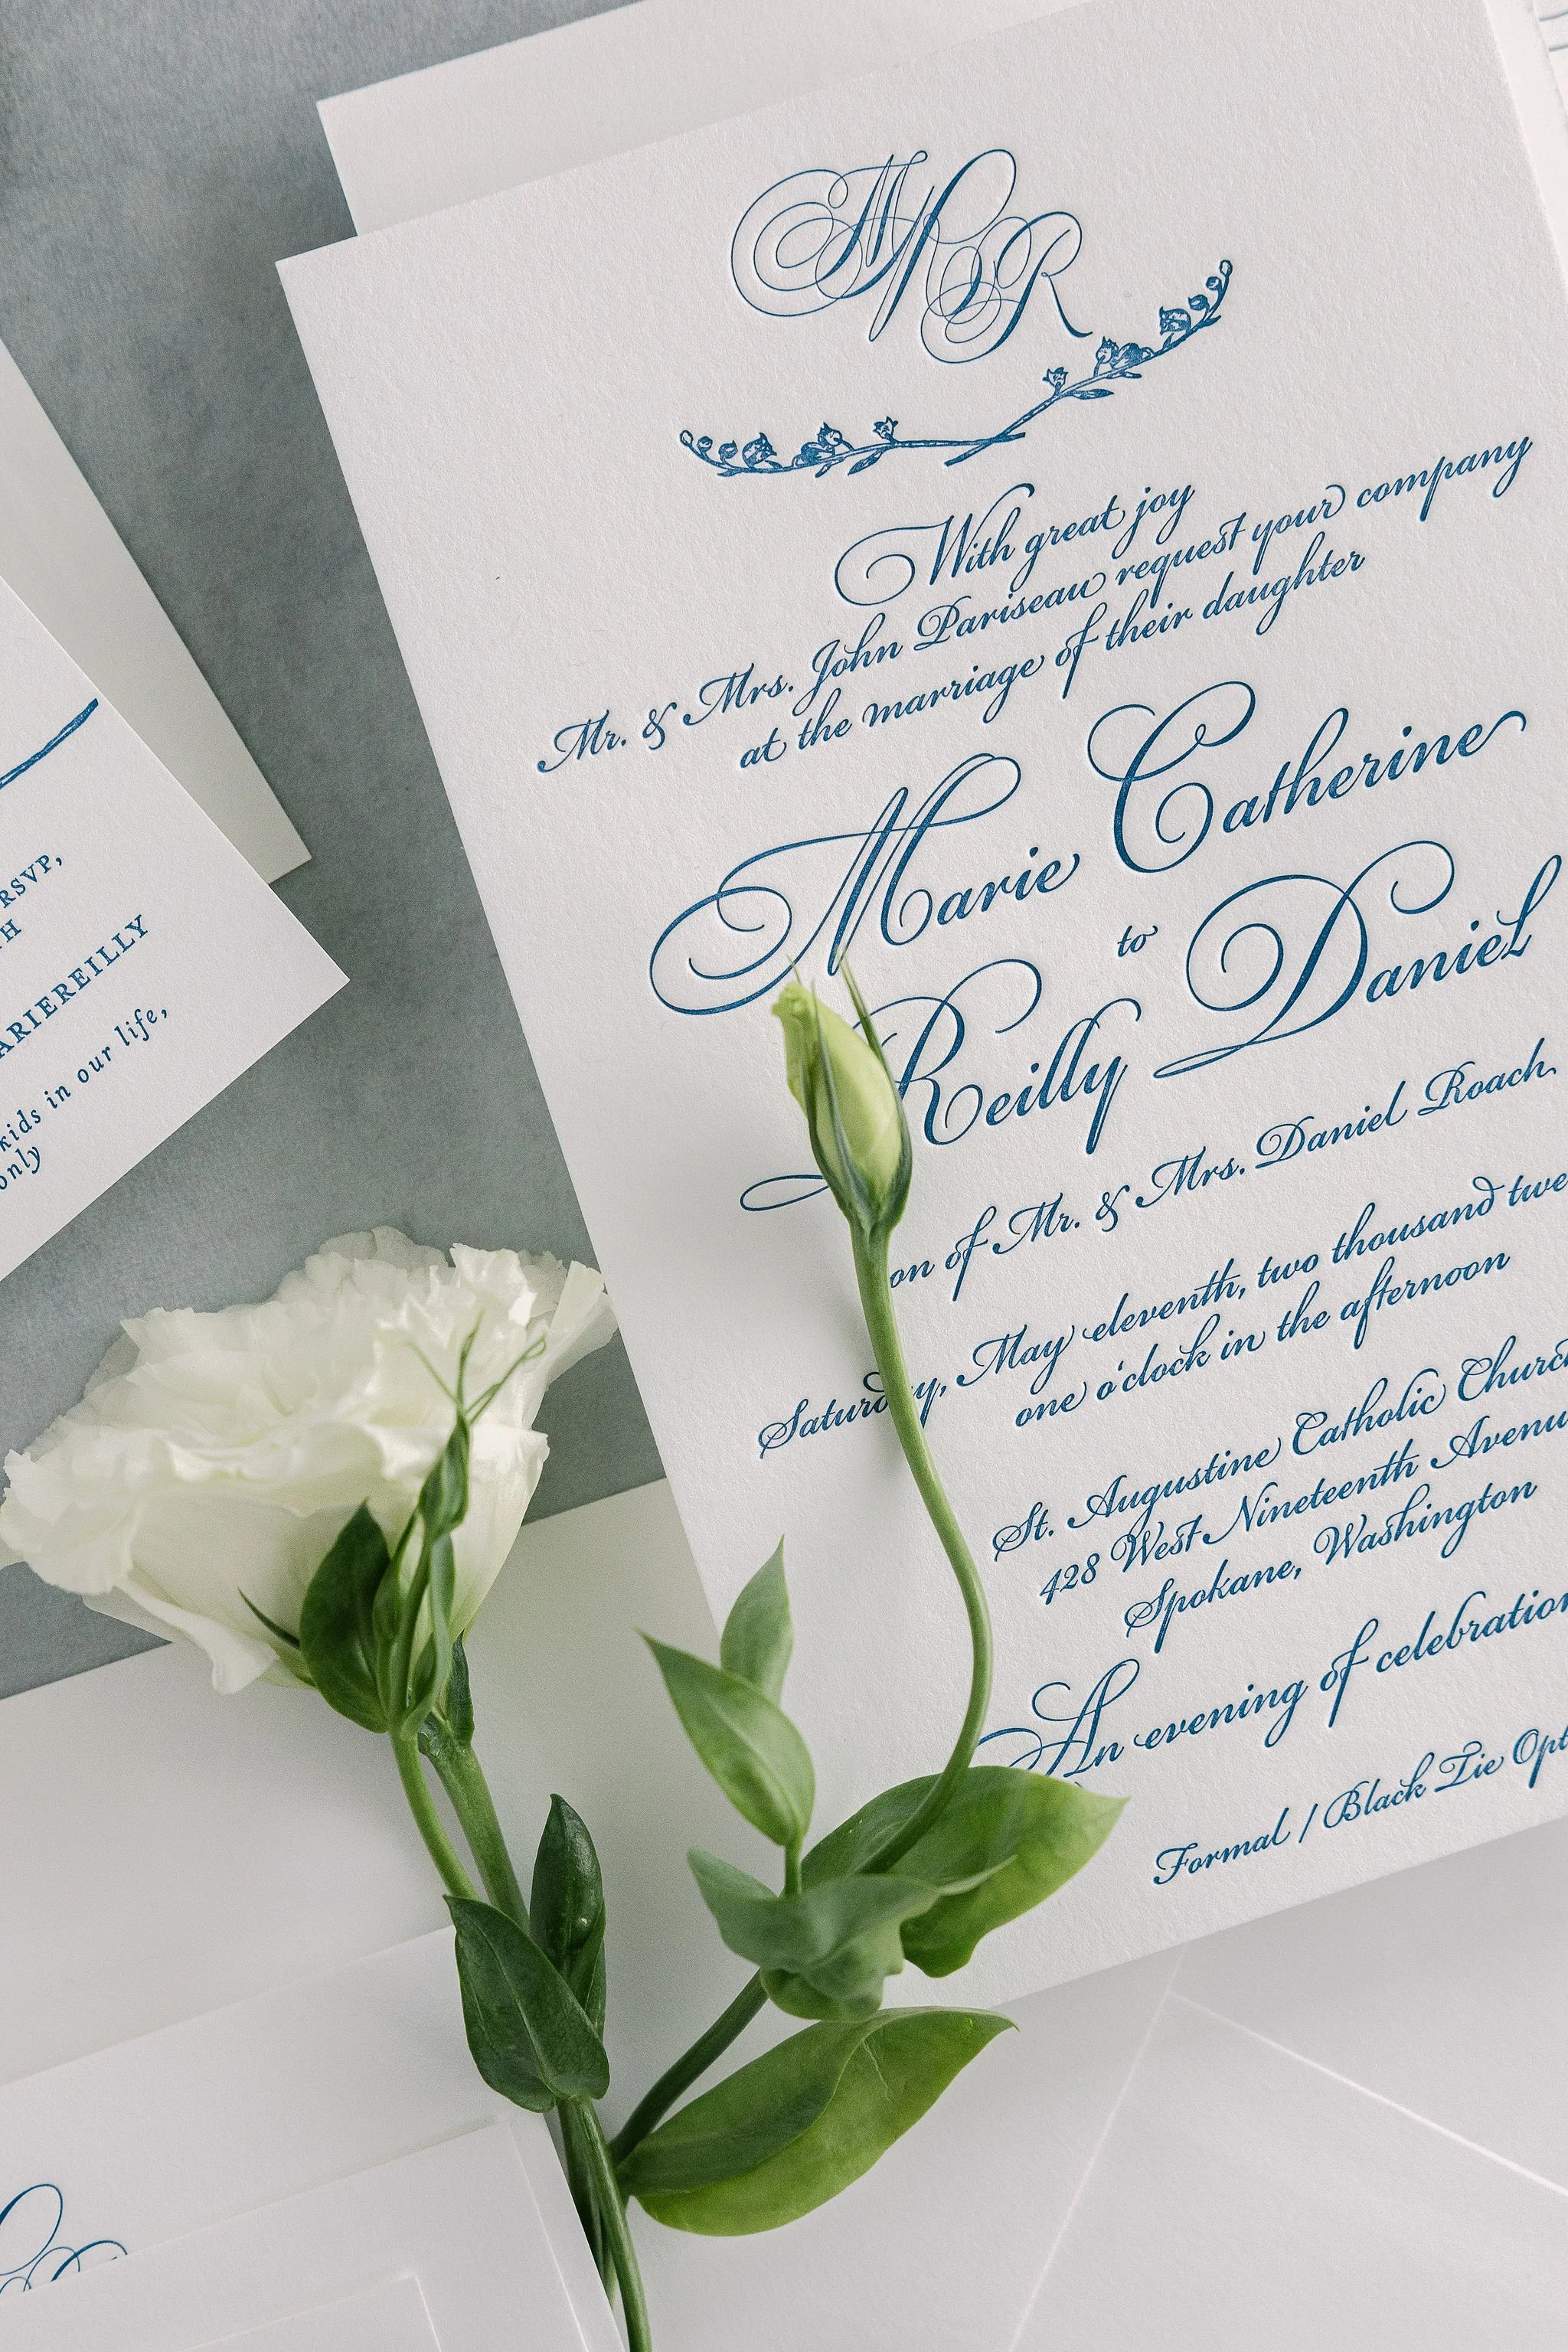 MPR
With great joy
Mr. & Mrs. John Pariseau request your company
at the marriage of their daughter
Marie Catherine
to
Reilly Daniel
on of Mr. & Mrs. Daniel Roach
Saturday, May eleventh, two thousand twe
one o'clock in the afternoon
St. Augustine Catholic Churc
428 West Nineteenth Avenu
Spokane, Washington
An evening of celebration
Formal / Black Tie Opt
RSVP,
TH
ARIEREILLY
kids in our life,
only